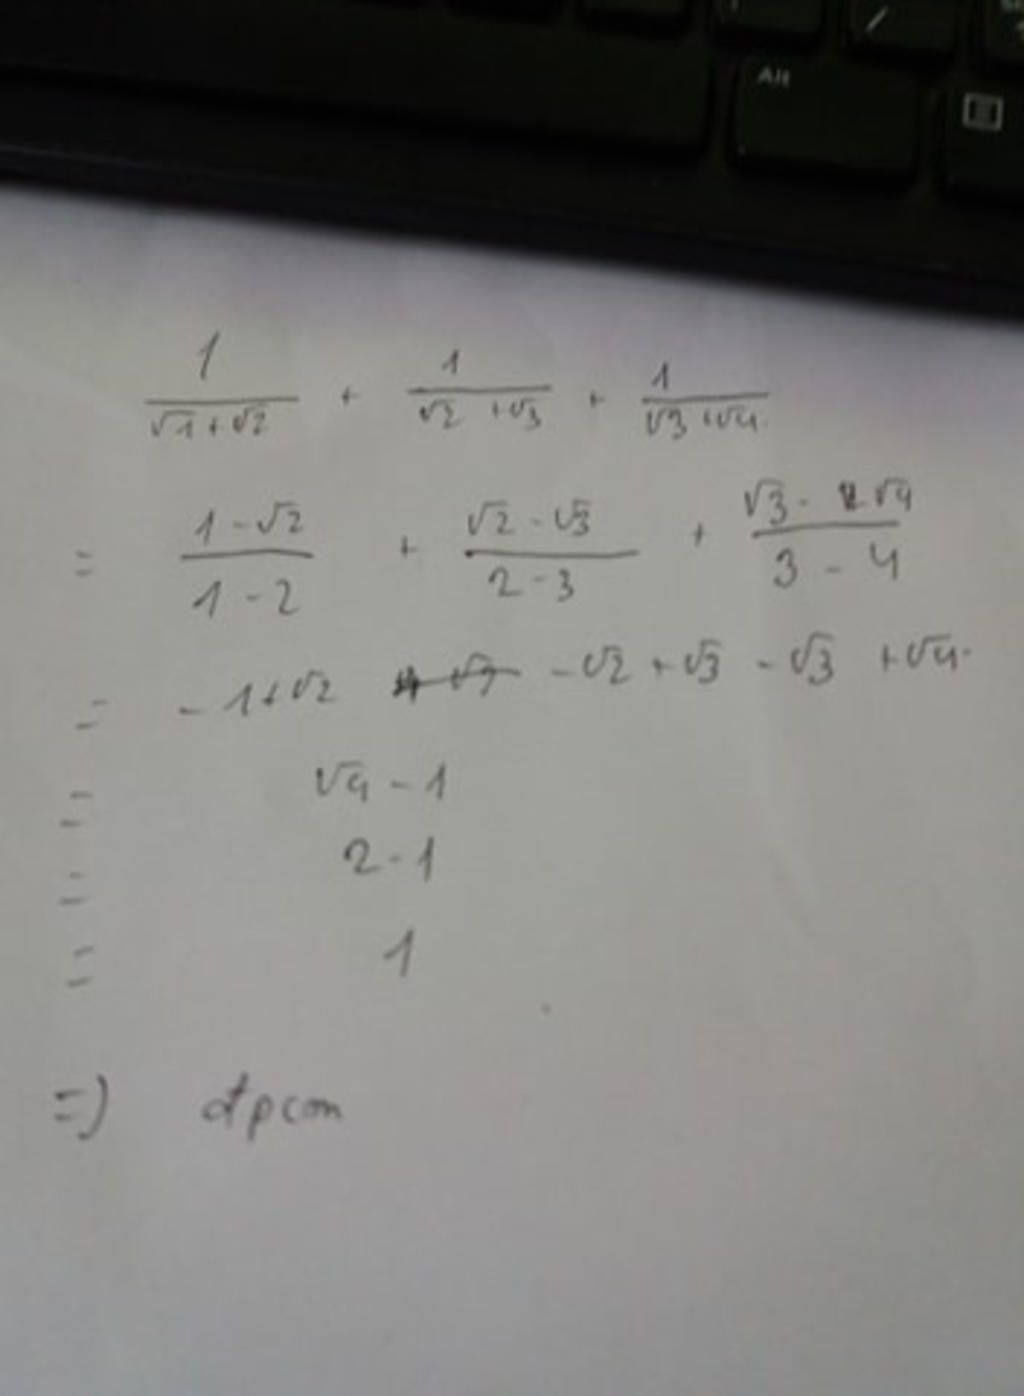 Alt
1/(√1+√2) + 1/(√2+√3) + 1/(√3+√4)
= (1-√2)/(1-2) + (√2-√3)/(2-3) + (√3-√4)/(3-4)
= -1+√2 -√2+√3 -√3+√4
= √4-1
= 2-1
= 1
=) đpcm